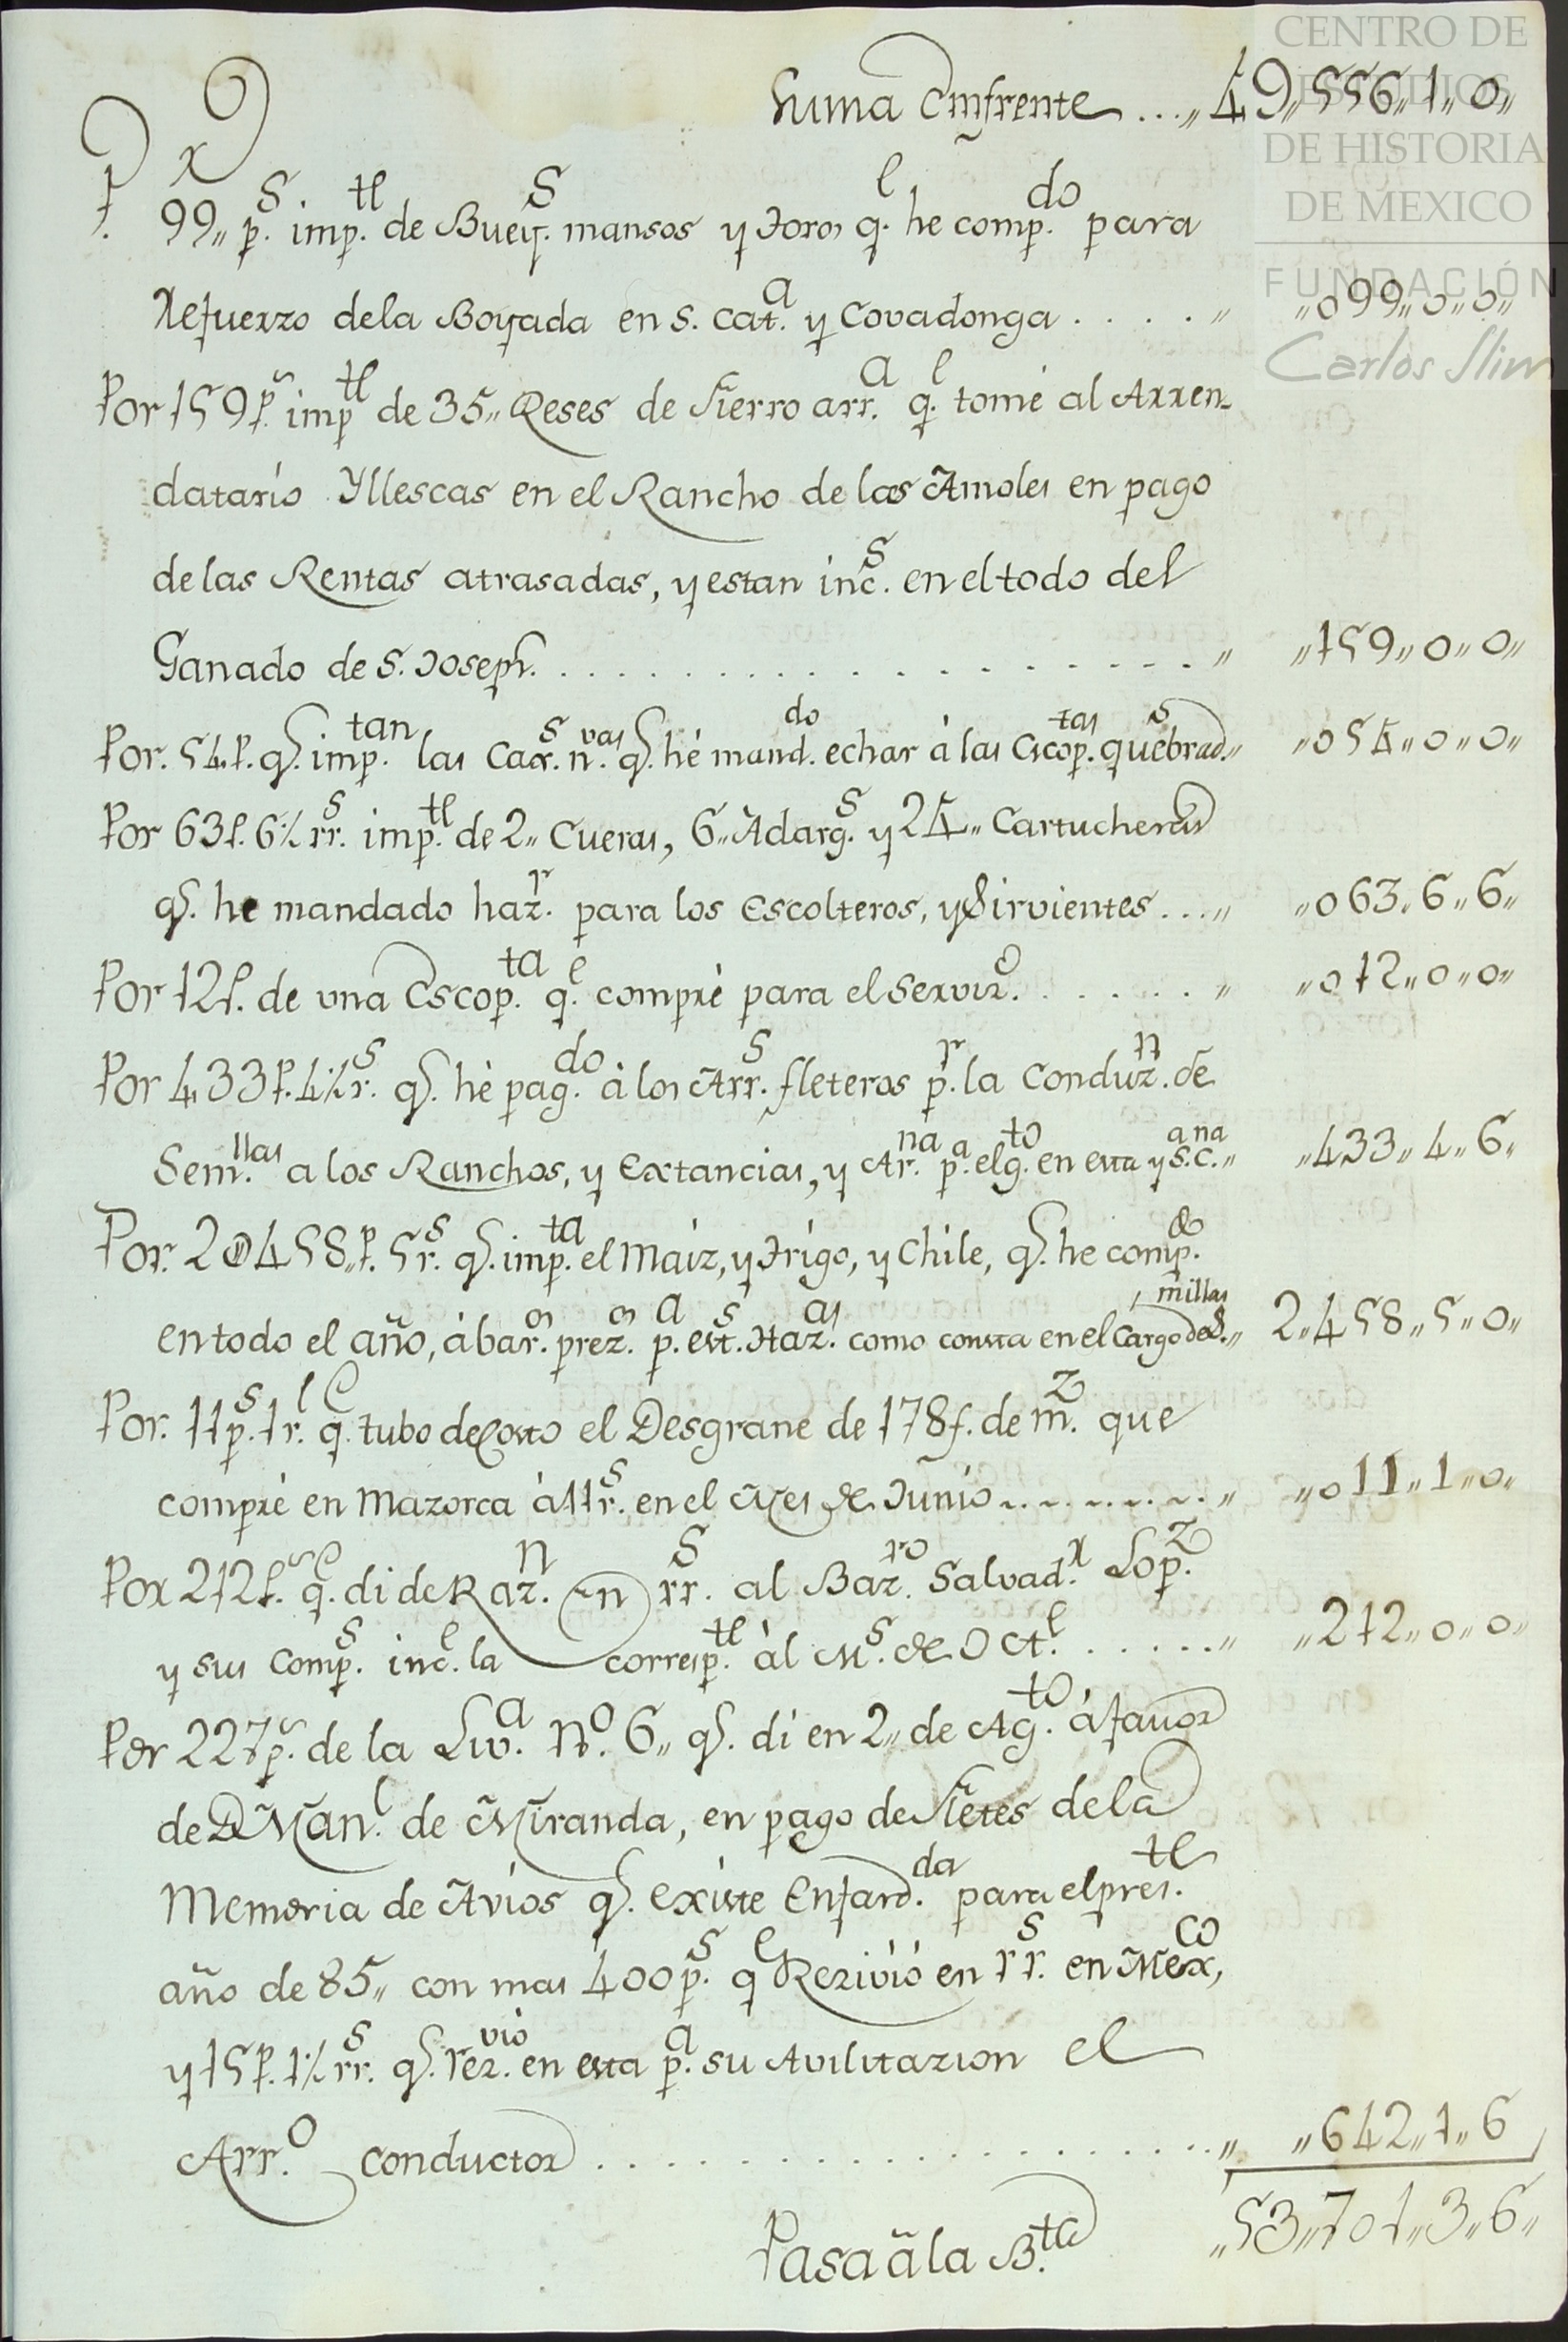 Suma Emfrente ... „ 49„556„1„0„
Por 99„ p.s imp.te de Buey.s mansos y Toros q.e he comp.do para
Refuerzo dela Boyada en S. Cat.a y Covadonga . . . . „ „099„0„0„
Por 159 p.s imp.te de 35„ Reses de fierro arr.a q.e tomé al Arren-
datario Yllescas en el Rancho de los Amoles en pago
de las Rentas atrasadas, y estan inc.s en el todo del
Ganado de S. Joseph. . . . . . . . . . . . . . „ „159„0„0„
Por. 54 p. q.e imp.tan las Cax.s n.vas q.e hé mand.do echar á las Escop.tas quebrad.s „ „054„0„0„
Por 63 p. 6½ rr.s imp.te de 2„ Cueras, 6„ Adarg.s y 24„ Cartucheras
q.e he mandado haz.r para los Escolteros, y Sirvientes ... „ „063„6„6„
Por 12 p. de una Escop.ta q.e compré para el Serviz.o . . . . . . „ „012„0„0„
Por 433 p. 4½ r.s q.e hé pag.do á los Arr.s fleteros p.r la Conduz.n de
Sem.llas a los Ranchos, y Extancias, y Ar.na p.a el g.to en esta y S.a C.na „ „433„4„6„
Por. 20458„ p. 5 r.s q.e imp.ta el Maiz, y Trigo, y Chile, q.e he comp.do
en todo el año, á bar.os prez.os p.a est.s Haz.as como consta en el Cargo de S.millas „ 2„458„5„0„
Por. 11 p.s 1 r.l q.e tubo de Costo el Desgrane de 178 f. de m.z que
compré en Mazorca á 11 r.s en el Mes de Junio . . . . . . . „ „011„1„0„
Por 212 p.s q.e di de Raz.n en rr.s al Baz.ro Salvad.r Lop.z
y sus Comp.s inc.e la corresp.te ál M.s de Oct.e . . . . . . „ „212„0„0„
Por 227 p.s de la Liv.a N.o 6„ q.e di en 2„ de Ag.to á favor
de D. Man.l de Miranda, en pago de fletes dela
Memoria de Avios q.e existe Enfard.da para el pres.te
año de 85„ con mas 400 p.s q.e Rezivió en rr.s en Mex.co,
y 15 p. 1½ rr.s q.e rez.vió en esta p.a su Avilitazion el
Arr.o conductor . . . . . . . . . . . . „ „642„1„6
Pasa á la B.ta „53„701„3„6„
CENTRO DE
ESTUDIOS
DE HISTORIA
DE MEXICO
FUNDACIÓN
Carlos Slim